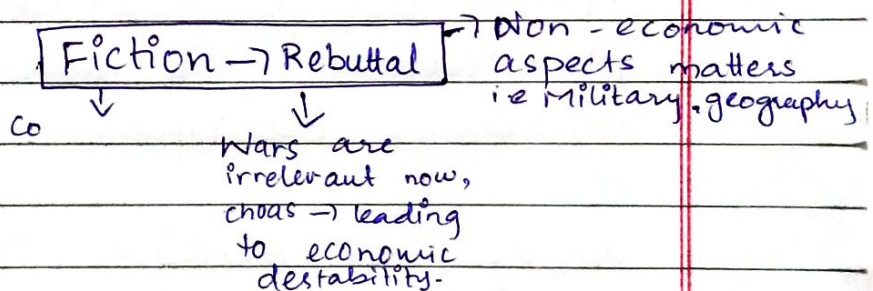 Fiction → Rebuttal
→ Non - economic
aspects matters
i.e Military, geography
↓
↓
Co
Wars are
irrelevant now,
choas → leading
to economic
destability.